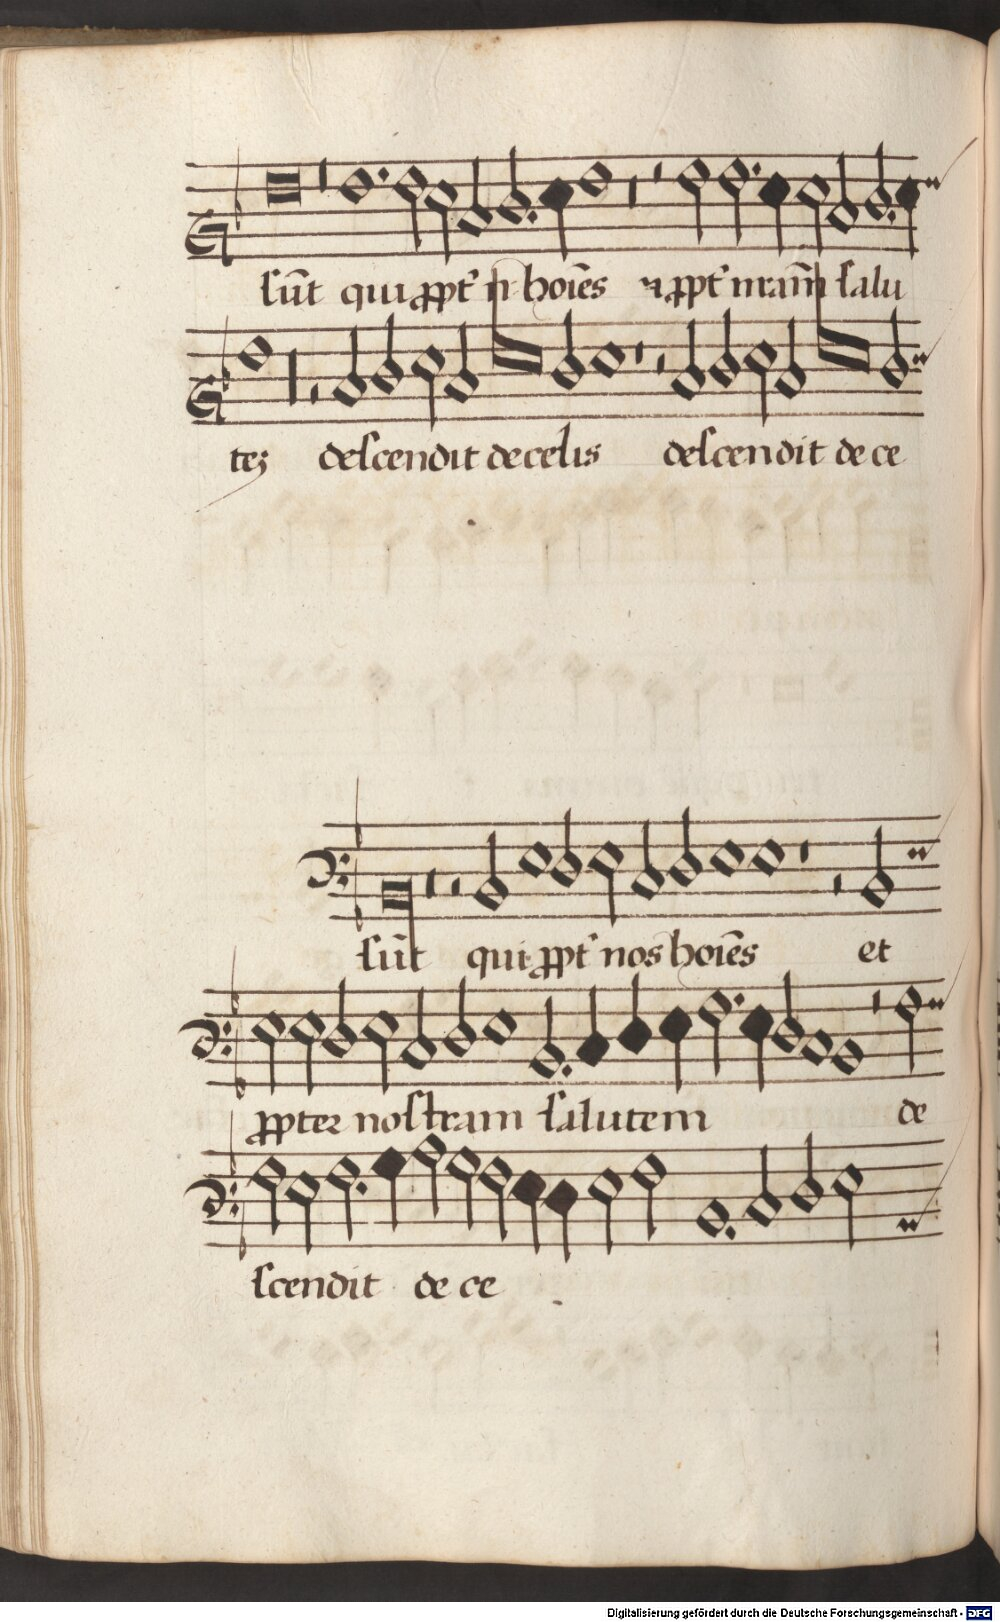 sūt qui ꝓpt' n̄ hoīes ⁊ ꝓpt' nr̄am salu
teꝫ descendit de celis descendit de ce
sūt qui ꝓpt' nos hoīes et
ꝓpter nostram salutem de
scendit de ce
Digitalisierung gefördert durch die Deutsche Forschungsgemeinschaft - DFG